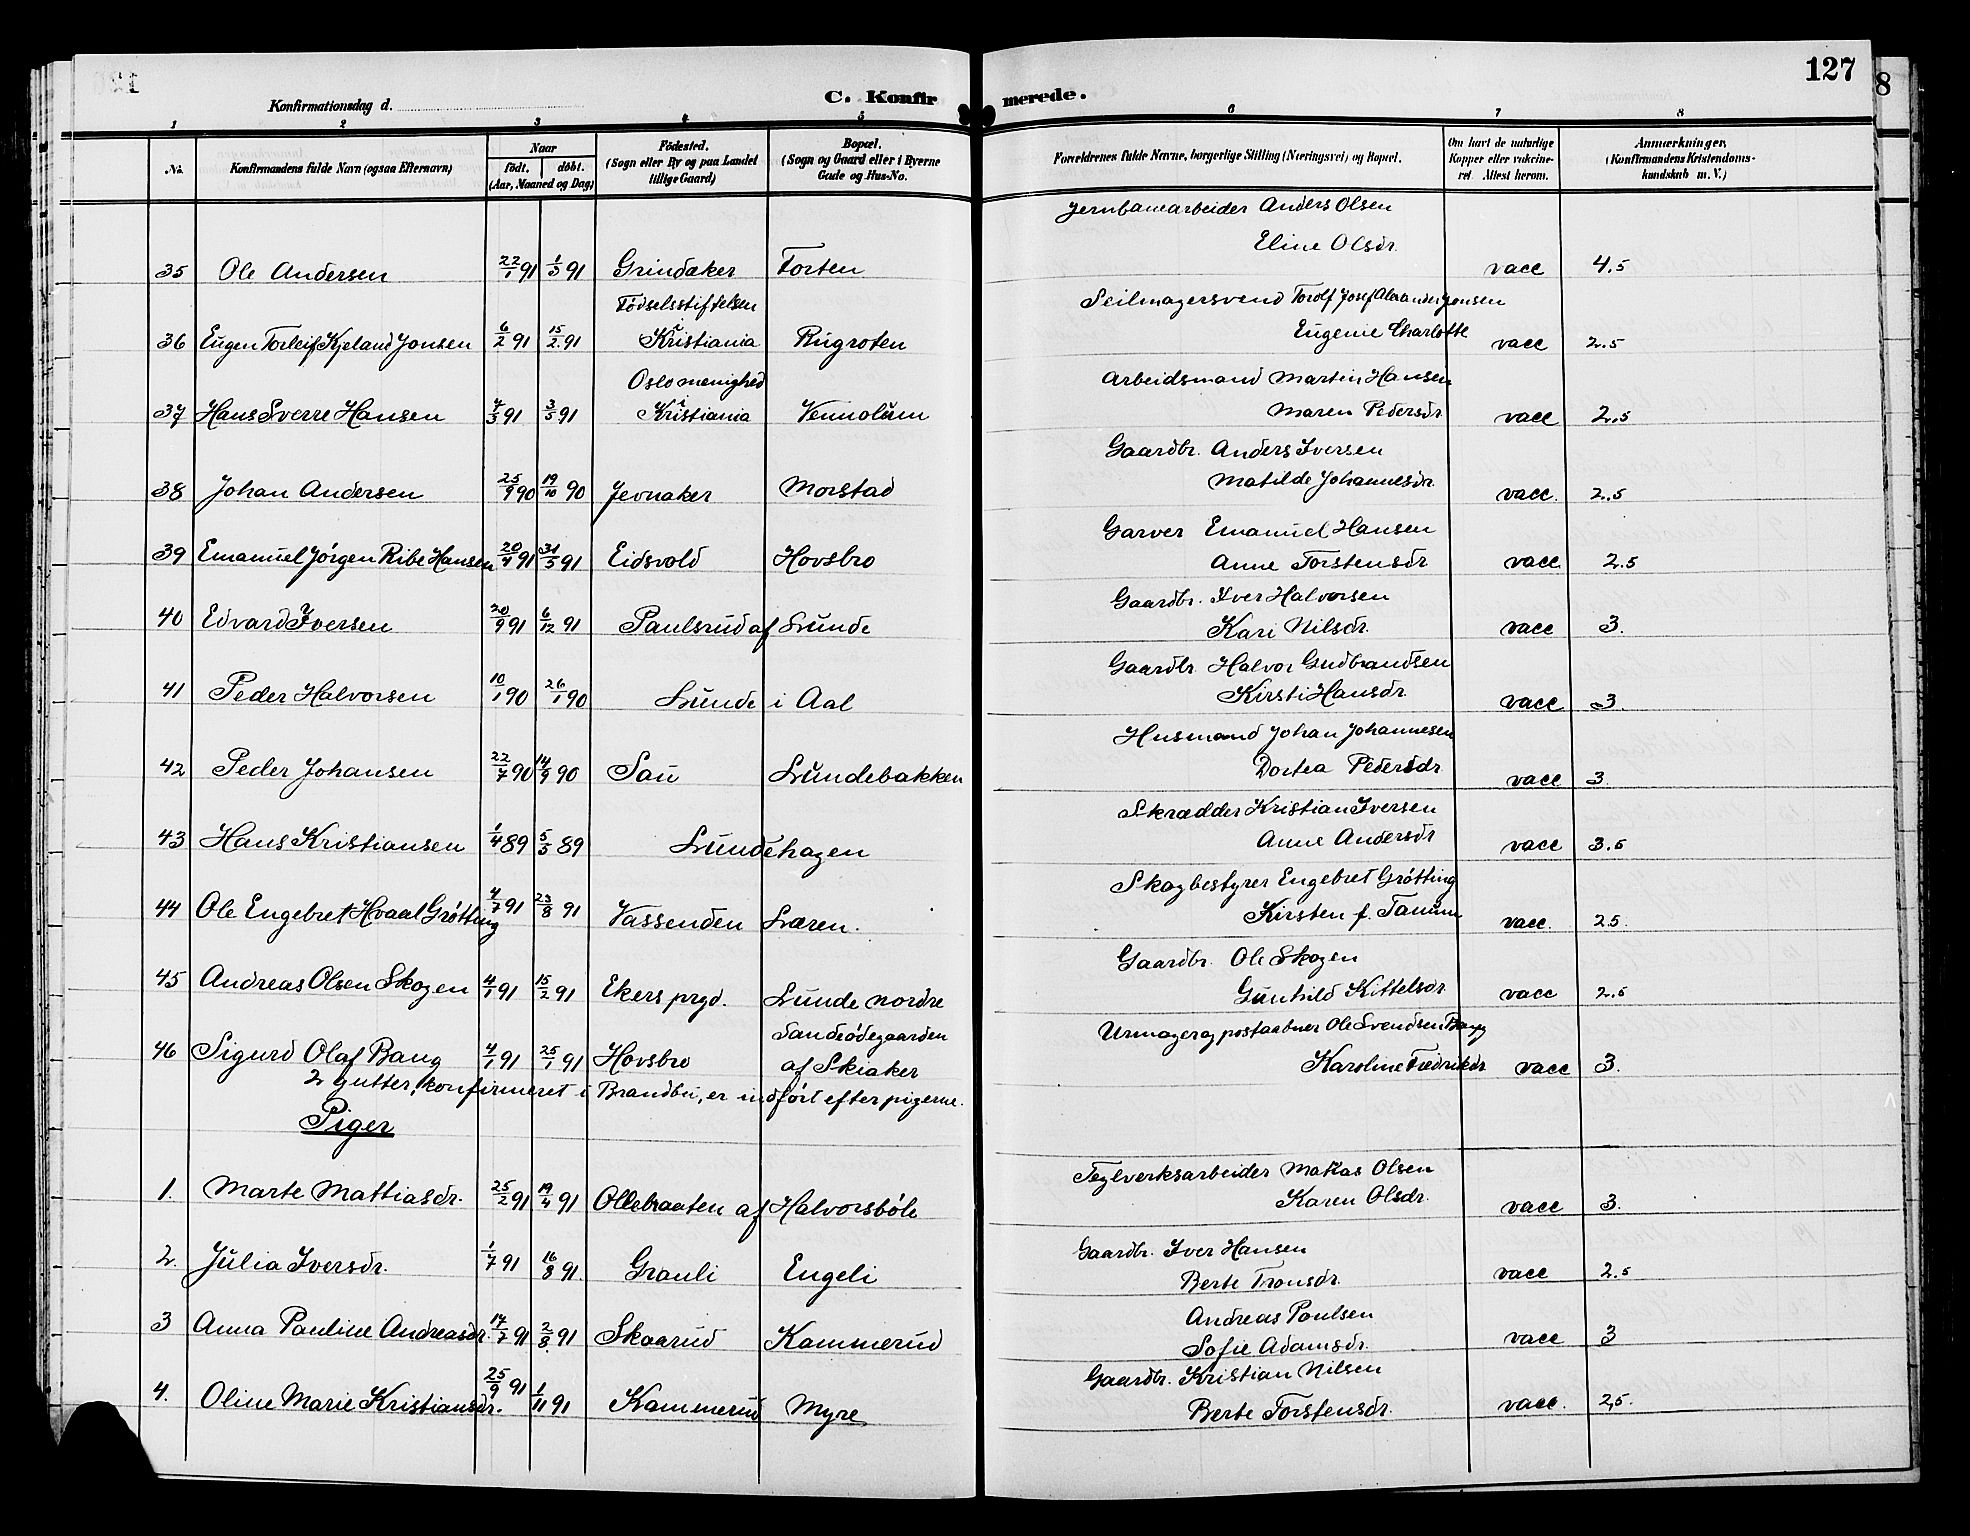 127
8
C. Konfirmerede.
Konfirmationsdag d.
1 2 3 4 5 6 7 8
No. Konfirmandens fulde Navn (ogsaa Efternavn) Naar født. døbt. (Aar, Maaned og Dag) Fødested. (Sogn eller By og paa Landet tillige Gaard) Bopæl. (Sogn og Gaard eller i Byerne Gade og Hus-No. Forældrenes fulde Navne, borgerlige Stilling (Næringsvei) og Bopæl. Om havt de naturlige Kopper eller vakcineret Attest herom. Anmærkninger. (Konfirmandens Kristendomskundskab m. V.)
Jernbanearbeider Anders Olsen
Eline Olsdr.
35 Ole Andersen 22/1 91 1/3 91 Grindaker Torten vacc 4.5
Fødselsstiftelsen Seilmagersvend Torolf Josef Alexander Jonsen
Eugenie Charlotte
36 Eugen Torleif Kjeland Jonsen 6/2 91 15/2 91 i Kristiania Rugroten vacc 2.5
Oslo menighed Arbeidsmand Martin Hansen
37 Hans Sverre Hansen 4/3 91 3/5 91 i Kristiania Vennolum Maren Pedersdr vacc 2.5
Gaardbr. Anders Iversen
38 Johan Andersen 25/9 90 19/10 90 Jevnaker Morstad Matilde Johannesdr. vacc. 2.5
Garver Emanuel Hansen
39 Emanuel Jörgen Ribe Hansen 20/4 91 31/5 91 Eidsvold Hovsbro Anne Torstensdr vacc 2.5
Gaardbr. Iver Halvorsen
40 Edvard Iversen 20/9 91 6/12 91 Paulsrud af Lunde Kari Nilsdr. vacc 3.
Gaardbr. Halvor Gudbrandsen
41 Peder Halvorsen 10/1 90 26/1 90 Lunde i Aal Kirsti Hansdr. vacc 3
Husmand Johan Johannesen
42 Peder Johansen 22/7 90 14/9 90 Sau Lundebakken Dortea Pedersdr vacc 3.
Skrædder Kristian Iversen
43 Hans Kristiansen 1/4 89 5/5 89 Lundehagen Anne Andersdr vacc 3.5
Skogbestyrer Engebret Grötting
44 Ole Engebret Hvaal Grötting 4/7 91 23/8 91 Vassenden Læren. Kirsten f. Tanum vacc. 25.
Gaardbr. Ole Skogen
45 Andreas Olsen Skogen 4/1 91 15/2 91 Ekers prgd. Lunde nordre Gunhild Kittelsdr vacc 2.5
Sandrödegaarden Urmager og postaabner Ole Svendsen Bang
46 Sigurd Olaf Bang 4/1 91 25/1 91 Hovsbro af Skiaker Karoline Fredriksdr vacc 3.
2 gutter, konfirmeret i Brandbu, er indført efter pigerne.
Piger
Teglverksarbeider Matias Olsen
1. Marte Mattiasdr. 25/2 91 19/4 91 Ollebraaten af Halvorsböle Karen Olsdr. vacc 3.
Gaardbr. Iver Hansen
2. Julia Iversdr. 1/7 91 16/8 91. Grauli Engeli Berte Tronsdr. vacc 2.5
Andreas Paulsen
3 Anna Pauline Andreasdr 14/7 91 2/8 91 Skaarud Kammerud Sofie Adamsdr. vacc 3
Gaardbr. Kristian Nilsen
4. Oline Marie Kristiansdr. 25/9 91 1/11 91 Kammerud Myre Berte Torstensdr. vacc. 2,5.